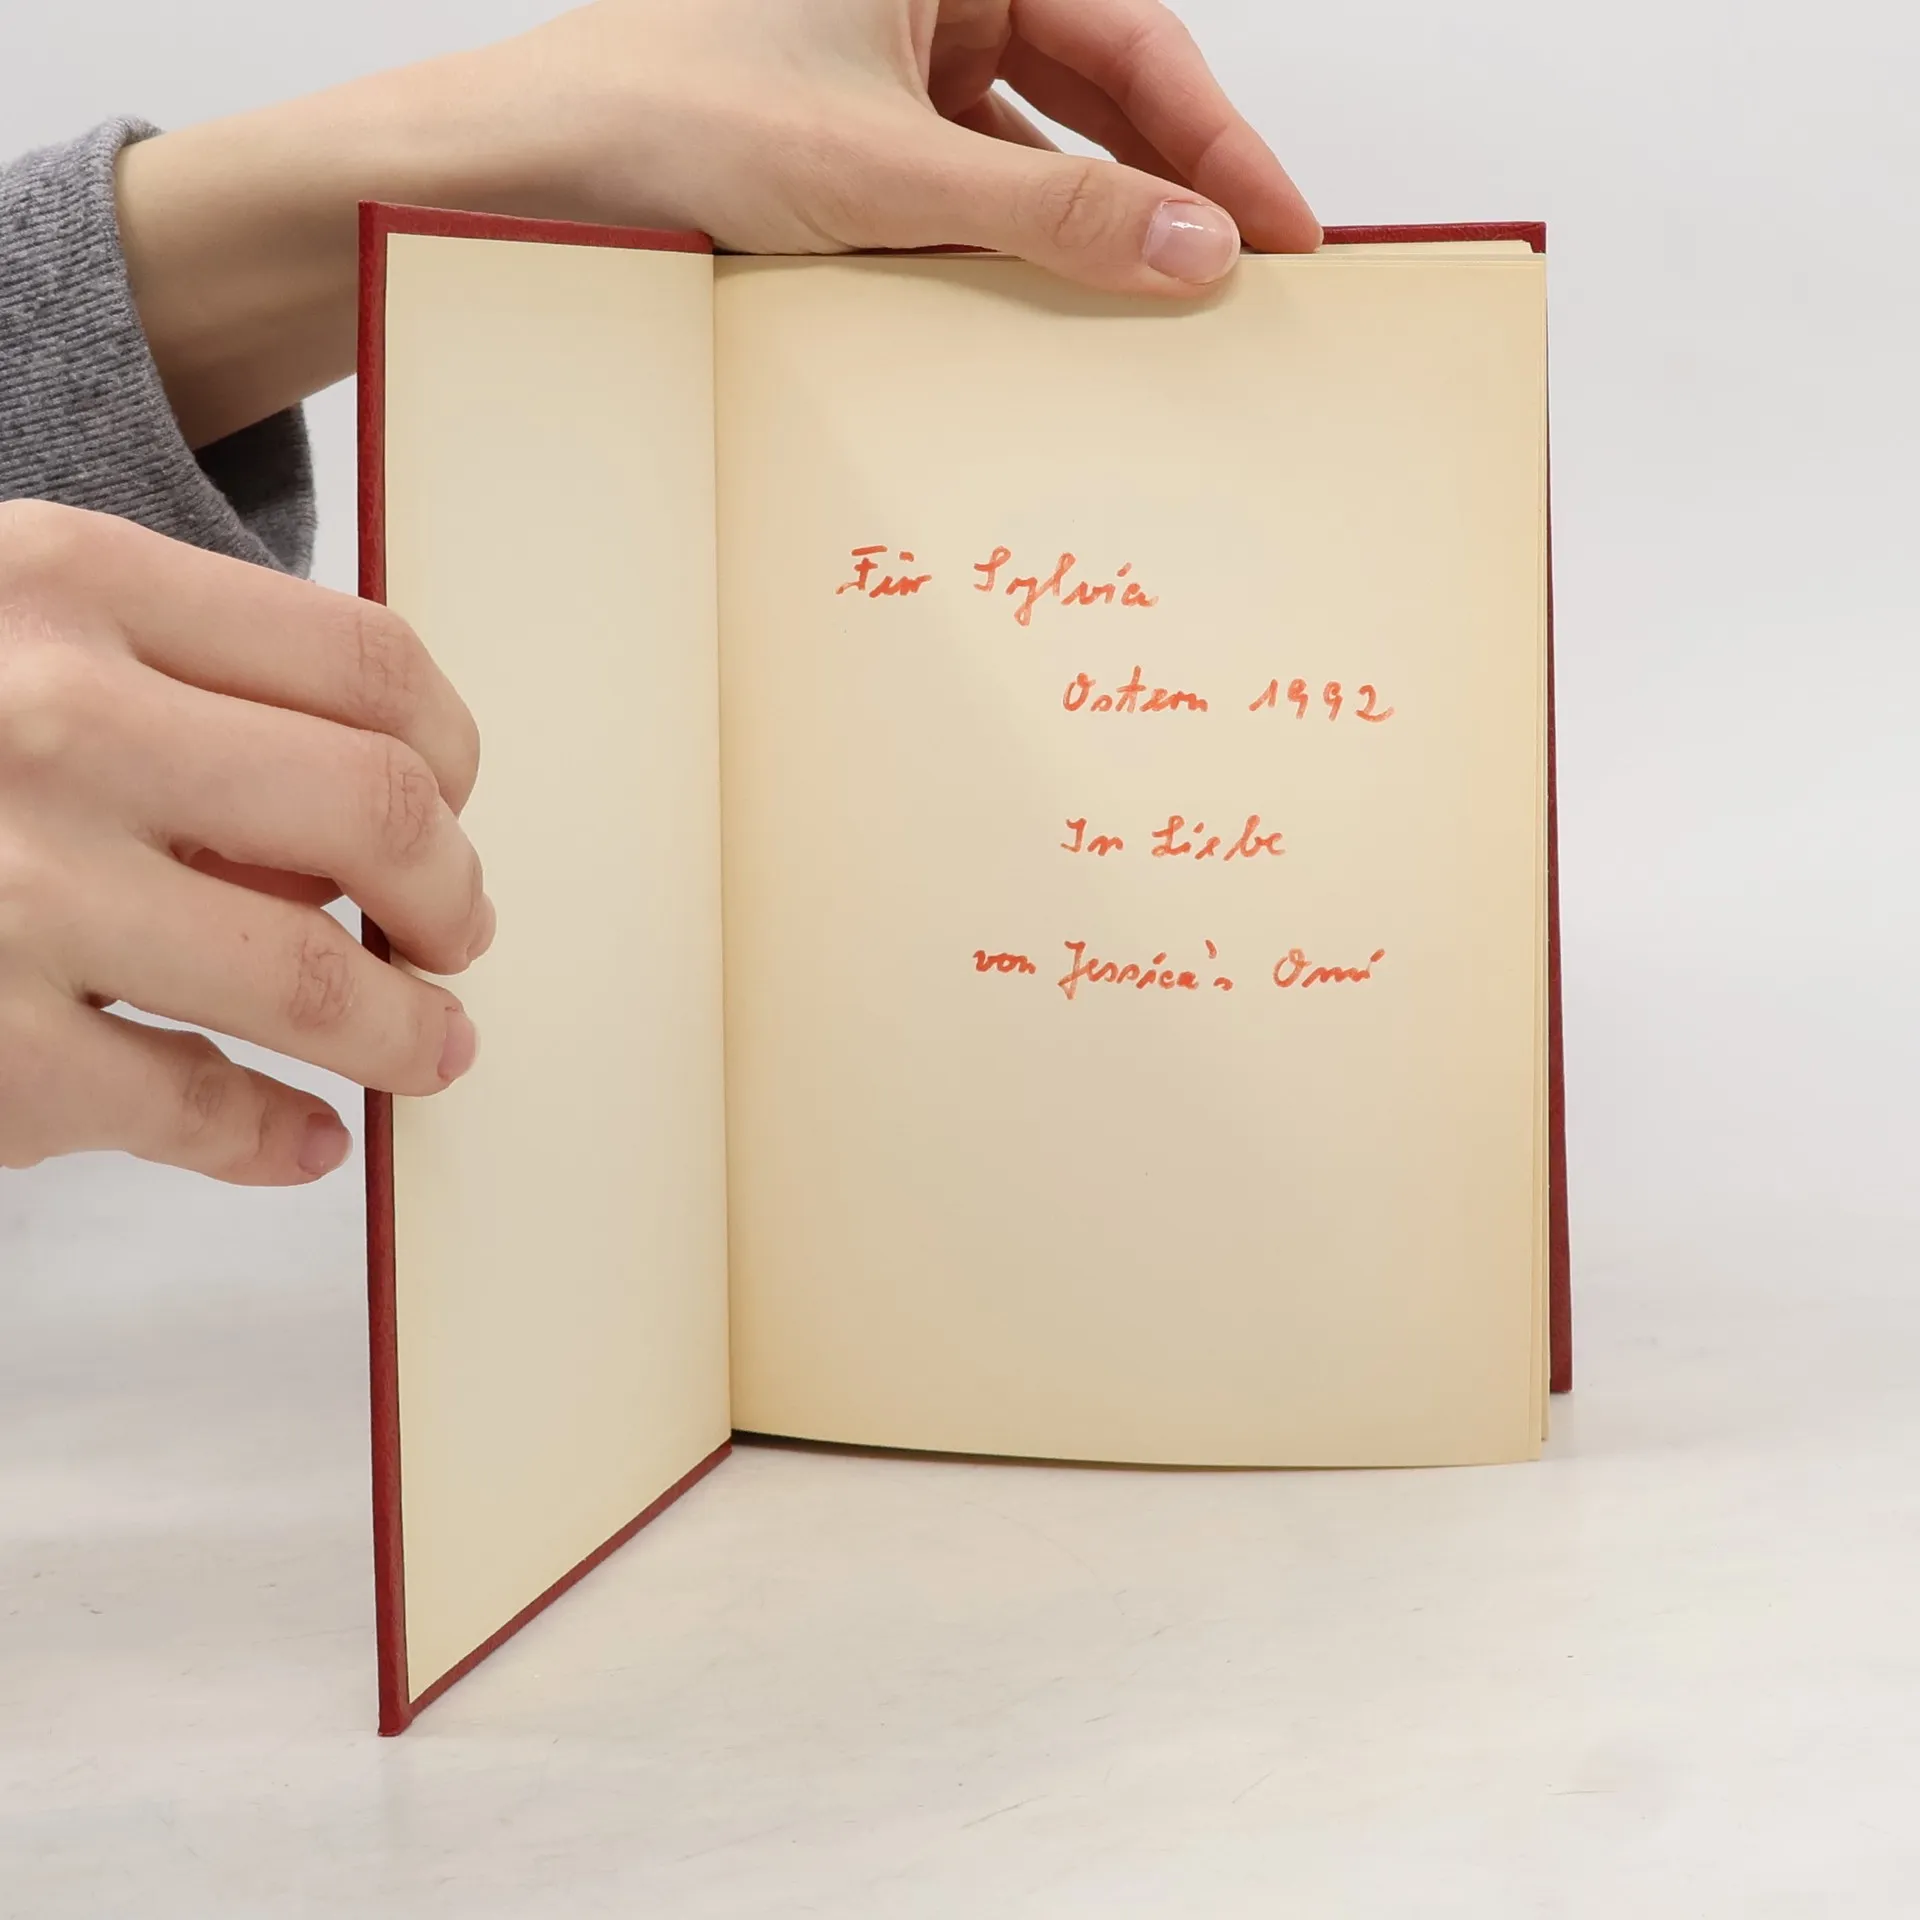 Für Sylvia
Ostern 1992
In Liebe
von Jessica's Omi